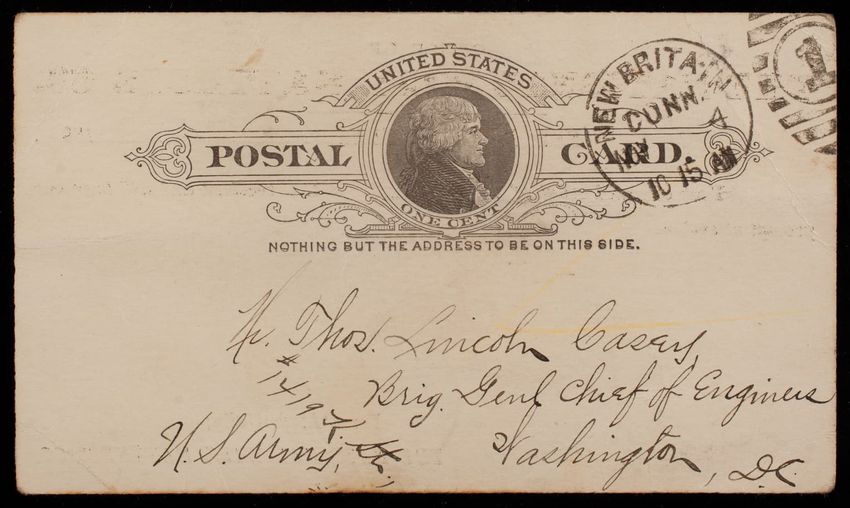 UNITED STATES
POSTAL CARD.
ONE CENT
NOTHING BUT THE ADDRESS TO BE ON THIS SIDE.
NEW BRITAIN
CONN.
4
10 15 AM
1
Thos. Lincoln Casey,
Brig. Genl Chief of Engineers
# 1419
U.S. Army,
Washington, D.C.